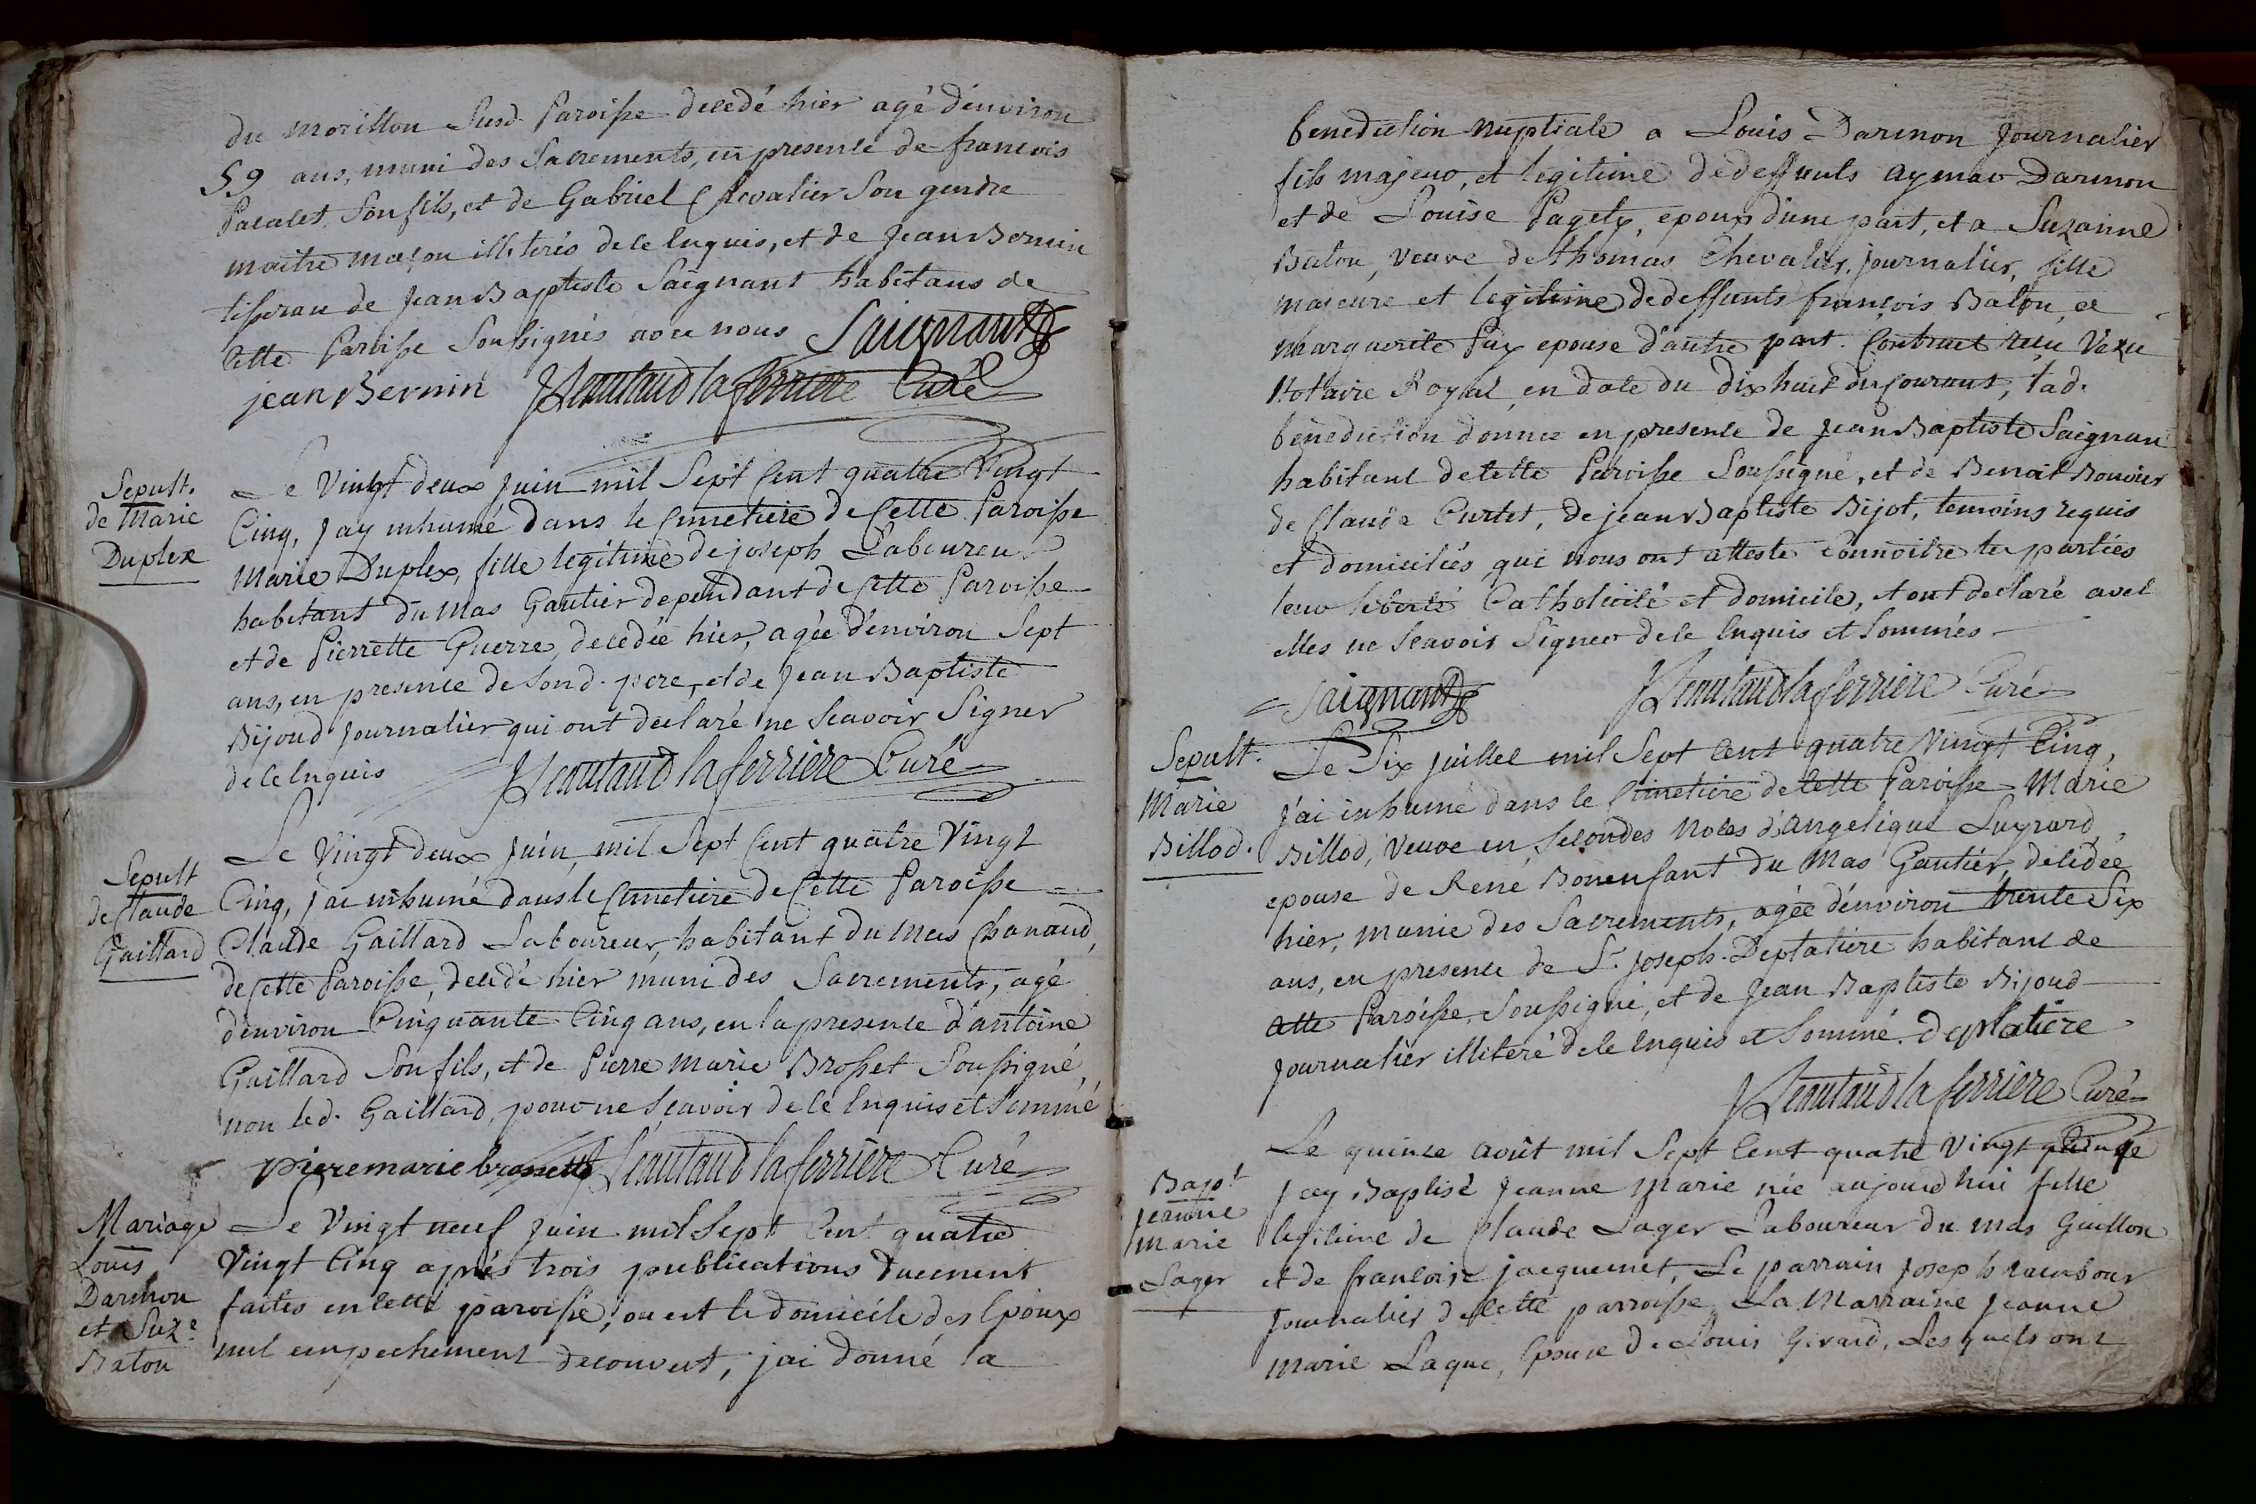 du morillon Susd. Paroisse decedé hier agé d'environ
59 ans, muni des Sacrements, en presence de francois
Pacalet Son fils, et de Gabriel Chevalier Son gendre
maitre maçon illiterés de ce Enquis, et de Jean Bernin
tisseran de Jean Baptiste Saignant habitans de
Cette Paroisse Soussignés avec nous Saignant
jean Bernin Leautaud laferriere Curé
Sepult.
de Marie
Duplex
Le Vingt deux Juin mil Sept Cent quatre Vingt
Cinq, J'ay inhumé dans le Cimetiere de Cette Paroisse
Marie Duplex, fille legitime de joseph Laboureur
habitant du Mas Gautier dependant de Cette Paroisse
et de Pierrette Guerre, decedée hier, agée d'environ Sept
ans, en presence de Sond. pere, et de Jean Baptiste
Bijoud Journalier qui ont declaré ne Scavoir Signer
de ce Enquis Leautaud laferriere Curé
Sepult
de Claude
Gaillard
Le Vingt deux Juin mil Sept Cent quatre Vingt
Cinq, j'ai inhumé dans le Cimetiere de Cette Paroisse
Claude Gaillard Laboureur, habitant du Mas Chanaud,
de Cette Paroisse, decedé hier muni des Sacrements, agé
d'environ Cinquante Cinq ans, en la presence d'antoine
Gaillard Son fils, et de Pierre Marie Brosset Soussigné,
non led. Gaillard, pour ne Scavoir de ce Enquis et Sommé
pieremarie brossette Leautaud laferriere Curé
Mariage
Louis
Darmon
et Suze
Baton
Le Vingt neuf Juin mil Sept Cent quatre
Vingt Cinq après trois publications duement
faites en cette paroisse, ou est le domicile des Epoux
nul empechement decouvert, j'ai donné la
benediction nuptiale a Louis Darmon Journalier
fils majeur, et legitime de deffunts aymar Darmon
et de Louise Paget, epoux d'une part, et a Suzanne
Baton, veuve de thomas Chevalier, journalier, fille
majeure et legitime de deffunts françois Baton, et
marguerite Puy epouse d'autre part. Contract recu
Notaire Royal, en date du dix huit du Courant, lad.
benediction donnee en presence de Jean Baptiste Saignan
habitant de cette Paroisse Soussigné, et de Benoit Bouvier
de Claude Curtet, de jean Baptiste Bijot, temoins requis
et domiciliés, qui nous ont attesté connoitre les parties
leur liberté Catholicité et domicile, et ont declaré avec
elles ne Scavoir Signer de ce Enquis et Sommés
Saignant Leautaud laferriere Curé
Sepult.
Marie
Billod.
Le Six Juillet mil Sept Cent quatre Vingt Cinq,
J'ai inhumé dans le Cimetiere de Cette Paroisse Marie
Billod, Veuve en Secondes Noces d'angelique Luyrard,
epouse de René Bonenfant du Mas Gautier, decedée
hier, munie des Sacrements, agée d'environ trente Six
ans, en presence de Sr. joseph Deplatiere habitant de
Cette Paroisse Soussigné, et de Jean Baptiste Bijoud
Journalier illiteré de ce Enquis et Sommé. deplatiere
Leautaud laferriere Curé
Bapt.
jeanne
marie
Lager
Le quinze Août mil Sept Cent quatre Vingt
J'ay Baptisé Jeanne Marie née aujourd'hui fille
legitime de Claude Lager Laboureur du mas Guillon
et de francoise jacquemet, Le parrain joseph
Journalier de Cette parroisse, La Marraine Jeanne
Marie Laque, Epouse de Louis Girard, Lesquels ont